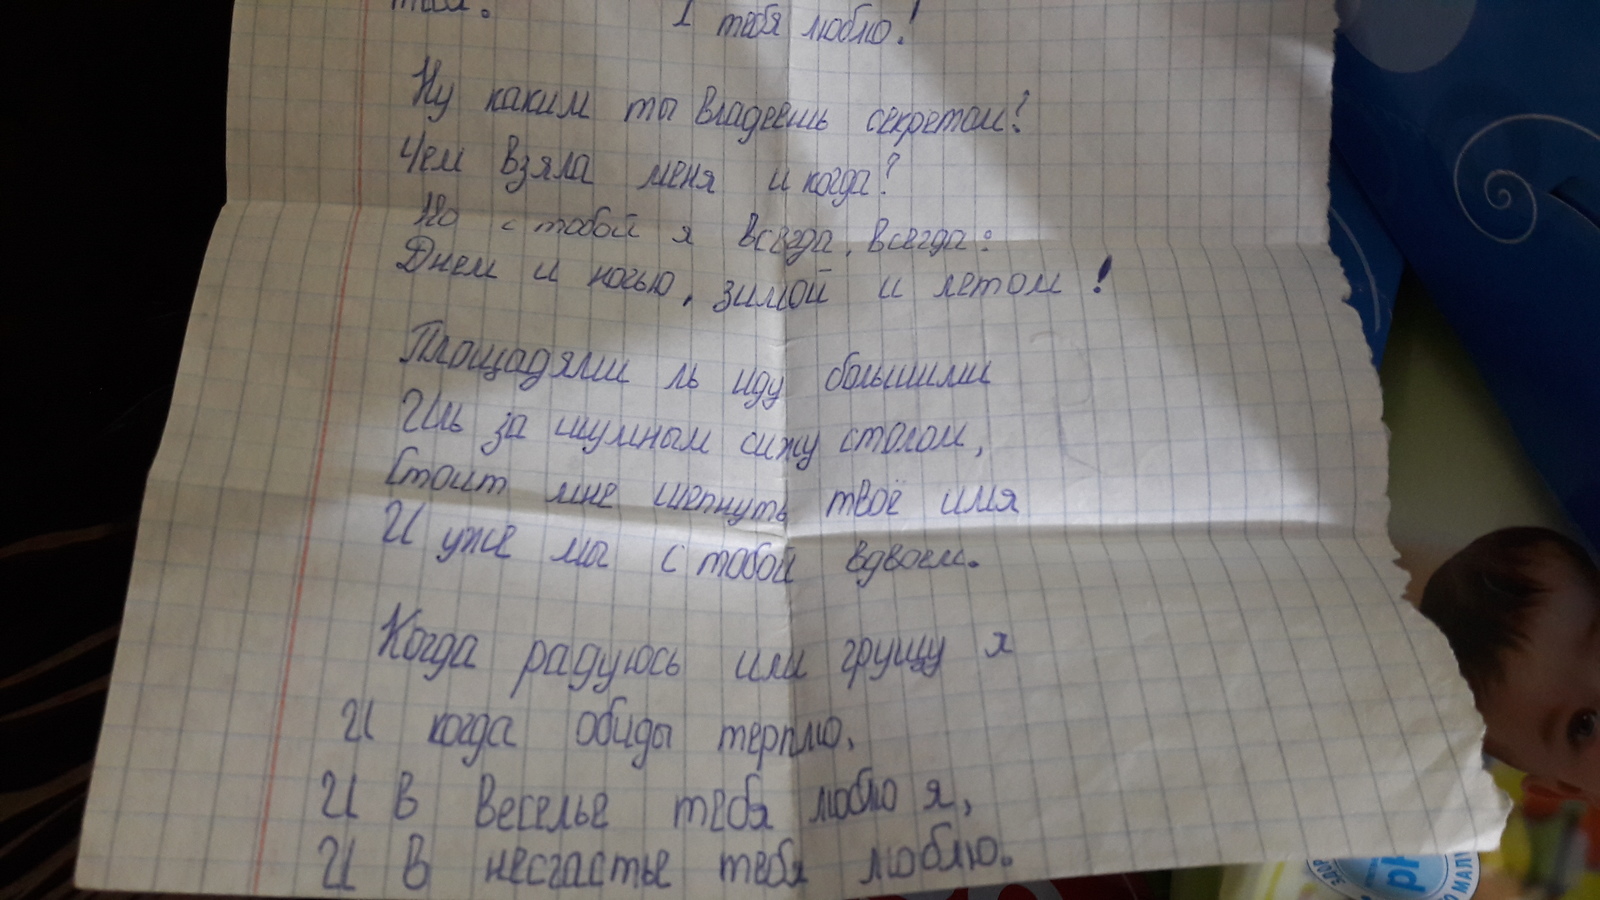 Я тебя люблю!
Ну каким ты владеешь секретом?
Чем взяла меня и когда?
Но с тобой я всегда, всегда:
Днем и ночью, зимой и летом!
Площадями ль иду большими
Иль за шумным сижу столом,
Стоит мне шепнуть твоё имя
И уже мы с тобой вдвоем.
Когда радуюсь или грущу я
И когда обиды терплю,
И в веселье тебя люблю я,
И в несчастье тебя люблю.